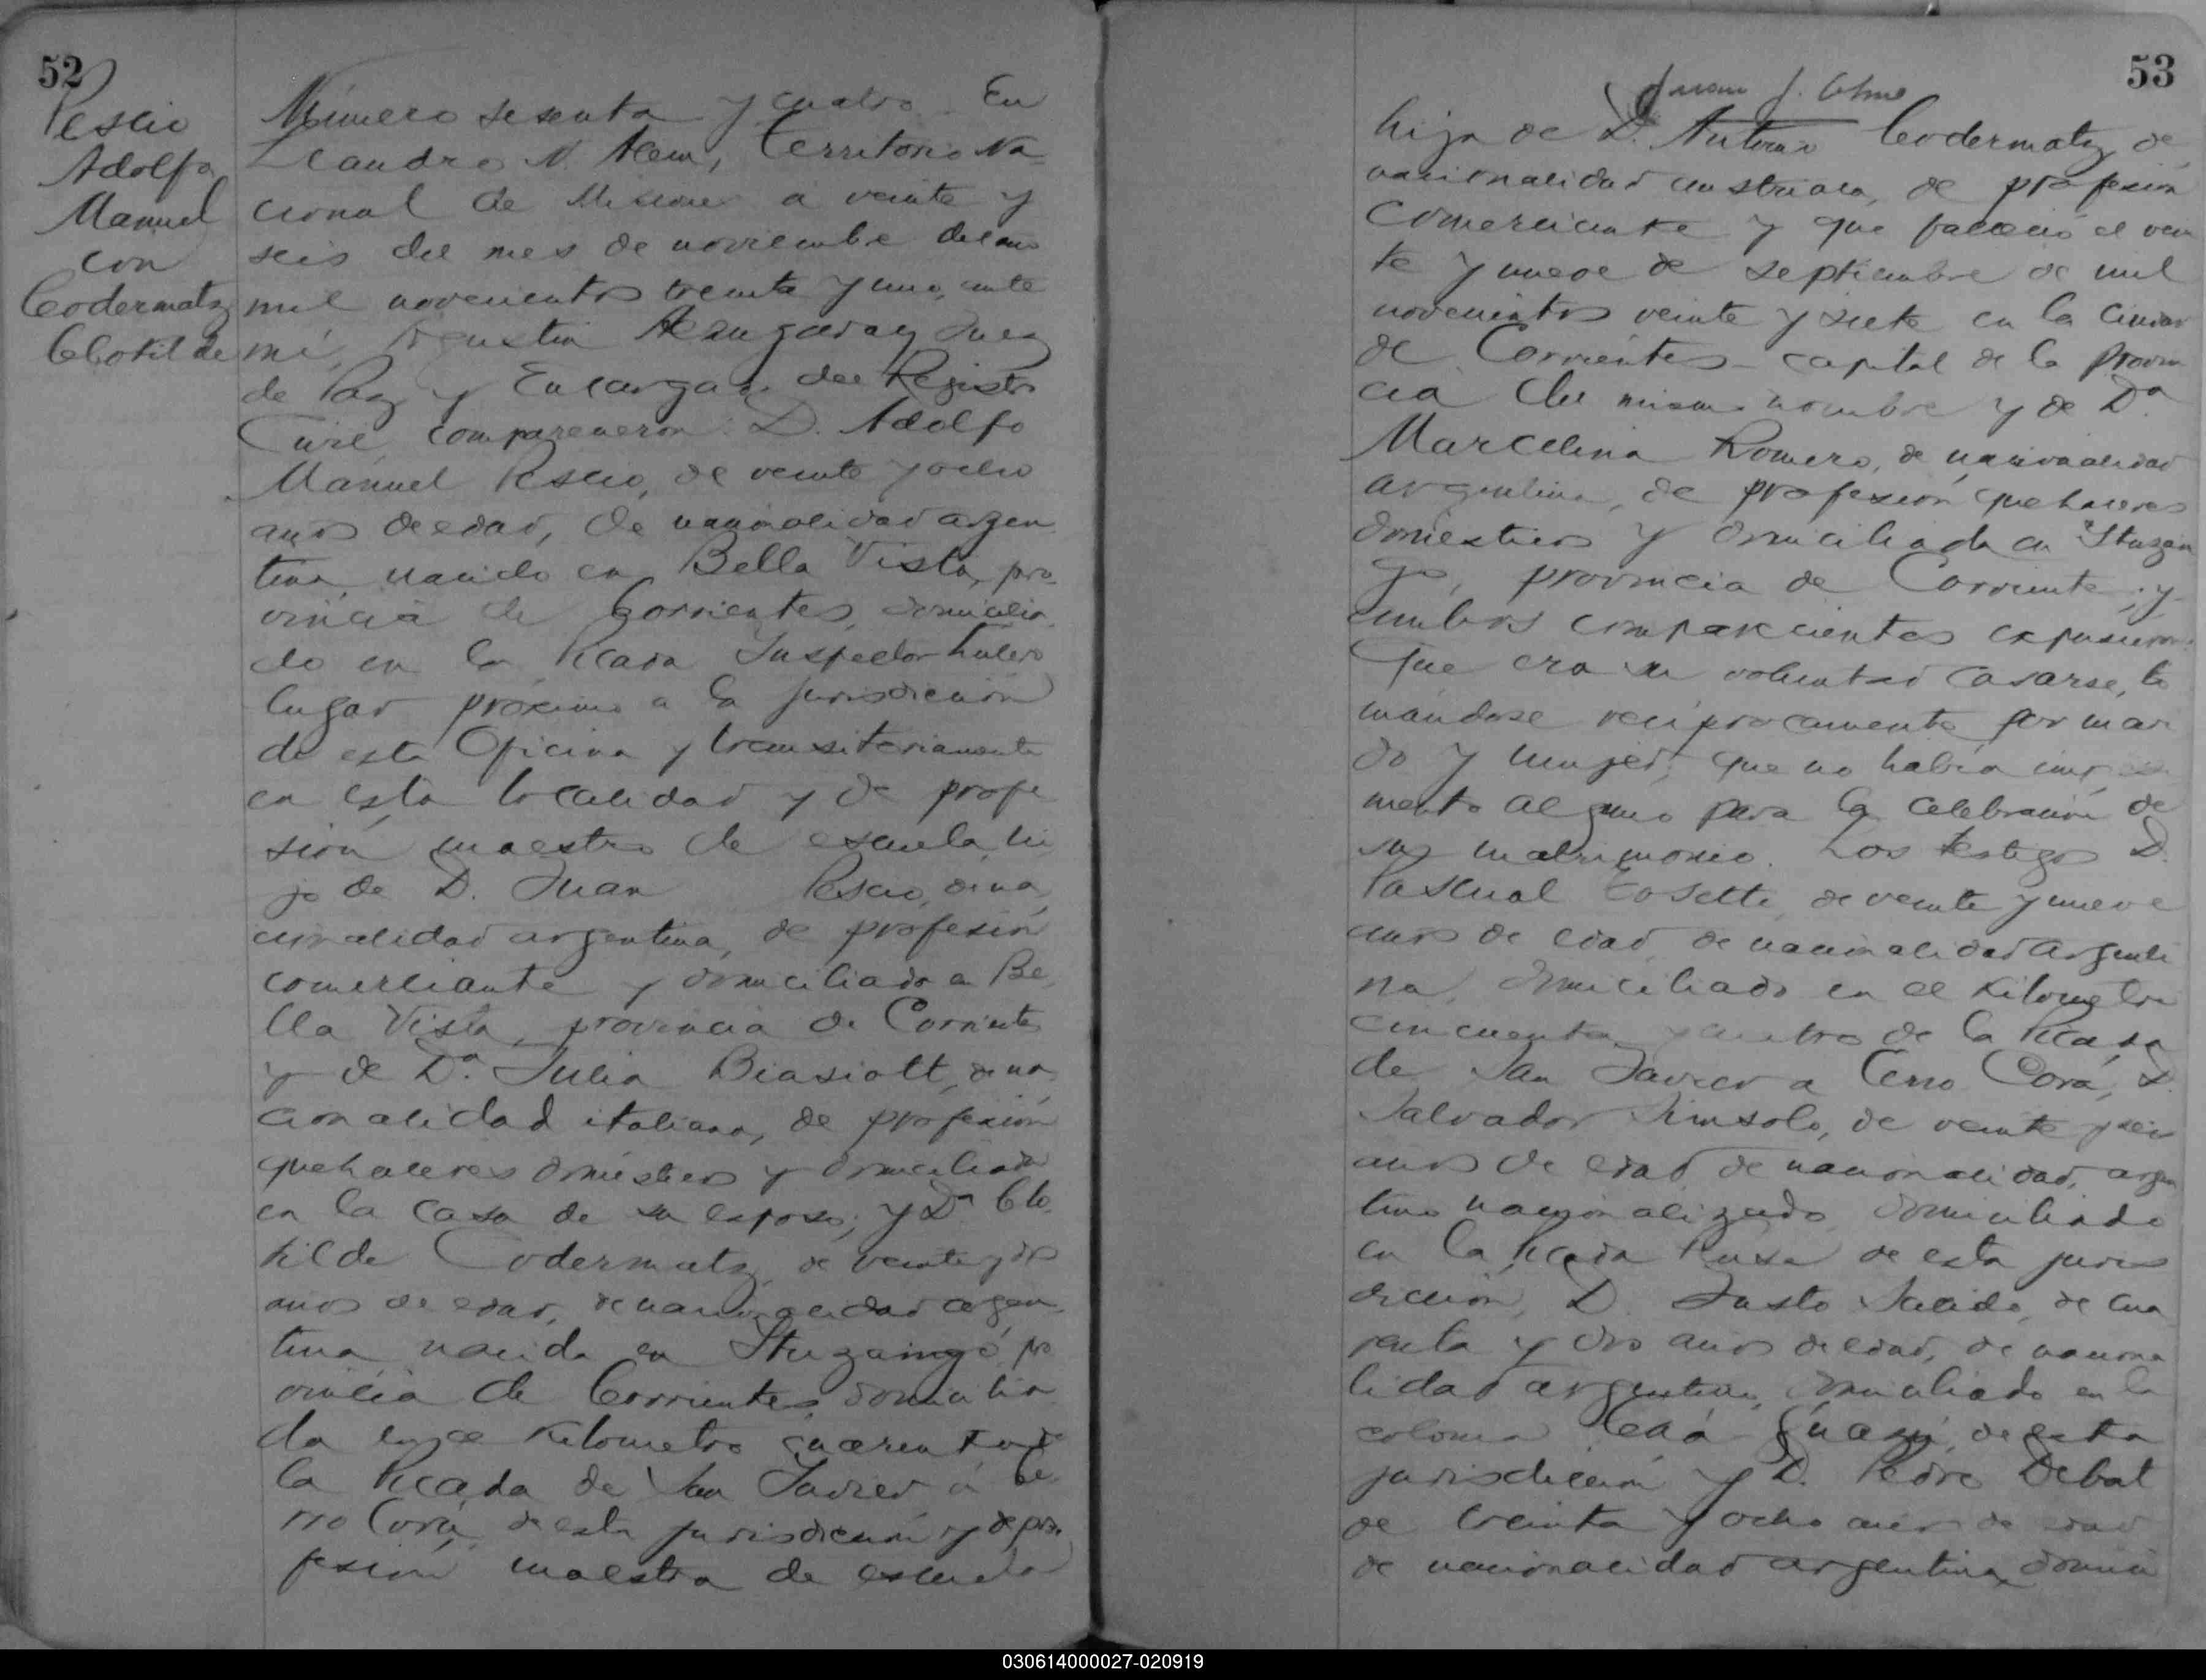 52
Pescio
Adolfo
Manuel
con
Codermatz
Clotilde
Número sesenta y cuatro En
Leandro N. Alem, Territorio Na
cional de Misiones a veinte y
seis del mes de noviembre del año
mil novecientos treinta y uno, ante
mí, Agustin Juez
de Paz y Encargado del Registro
Civil, comparecieron: D. Adolfo
Manuel Pescio, de veinte y ocho
años de edad, de nacionalidad argen
tina, nacido en Bella Vista, pro-
vincia de Corrientes, domicilia
do en la Picada Inspector
lugar próximo a la jurisdicción
de esta Oficina y transitoriamente
en esta localidad y de profe
sión maestro de escuela, hi
jo de D. Juan Pescio, de na
cionalidad argentina, de profesión
comerciante y domiciliado en Be
lla Vista, provincia de Corrientes
y de Da. Julia Biasiott, de na
cionalidad italiana, de profesión
quehaceres domésticos y domiciliada
en la casa de su esposo; y Da Clo
tilde Codermatz, de veinte y dos
años de edad, de nacionalidad argen
tina nacida en Ituzaingó, pro
vincia de Corrientes, domicilia
da en el Kilometro cuarenta de
la Picada de San Javier á Ce
rro Corá, de esta jurisdicción y de pro
fesión maestra de escuela
53
hija de D. Antonio Codermatz, de
nacionalidad austriaca, de profesión
comerciante y que falleció el vein
te y nueve de septiembre de mil
novecientos veinte y siete en la ciudad
de Corrientes - capital de la Provin
cia del mismo nombre y de Da.
Marcelina Romero, de nacionalidad
argentina, de profesión quehaceres
domésticos y domiciliada en Ituzain
go, provincia de Corrientes; y
ambos comparecientes expusieron:
Que era su voluntad casarse, to
mándose recíprocamente por mari
do y mujer; que no había impedi
mento alguno para la celebración de
su matrimonio. Los testigos D.
Pascual Cosetti, de veinte y nueve
años de edad, de nacionalidad argenti
na, domiciliado en el Kilometro
cincuenta y cuatro de la Picada
de San Javier a Cerro Corá, D.
Salvador de veinte y seis
años de edad de nacionalidad, argen
tino nacionalizado, domiciliado
en la Picada Rusa de esta juris
dicción, D. Justo de cua
renta y dos años de edad, de naciona
lidad argentina, domiciliado en la
colonia de esta
jurisdicción y D. Pedro Debat
de treinta y ocho años de edad
de nacionalidad argentina, domici
030614000027-020919